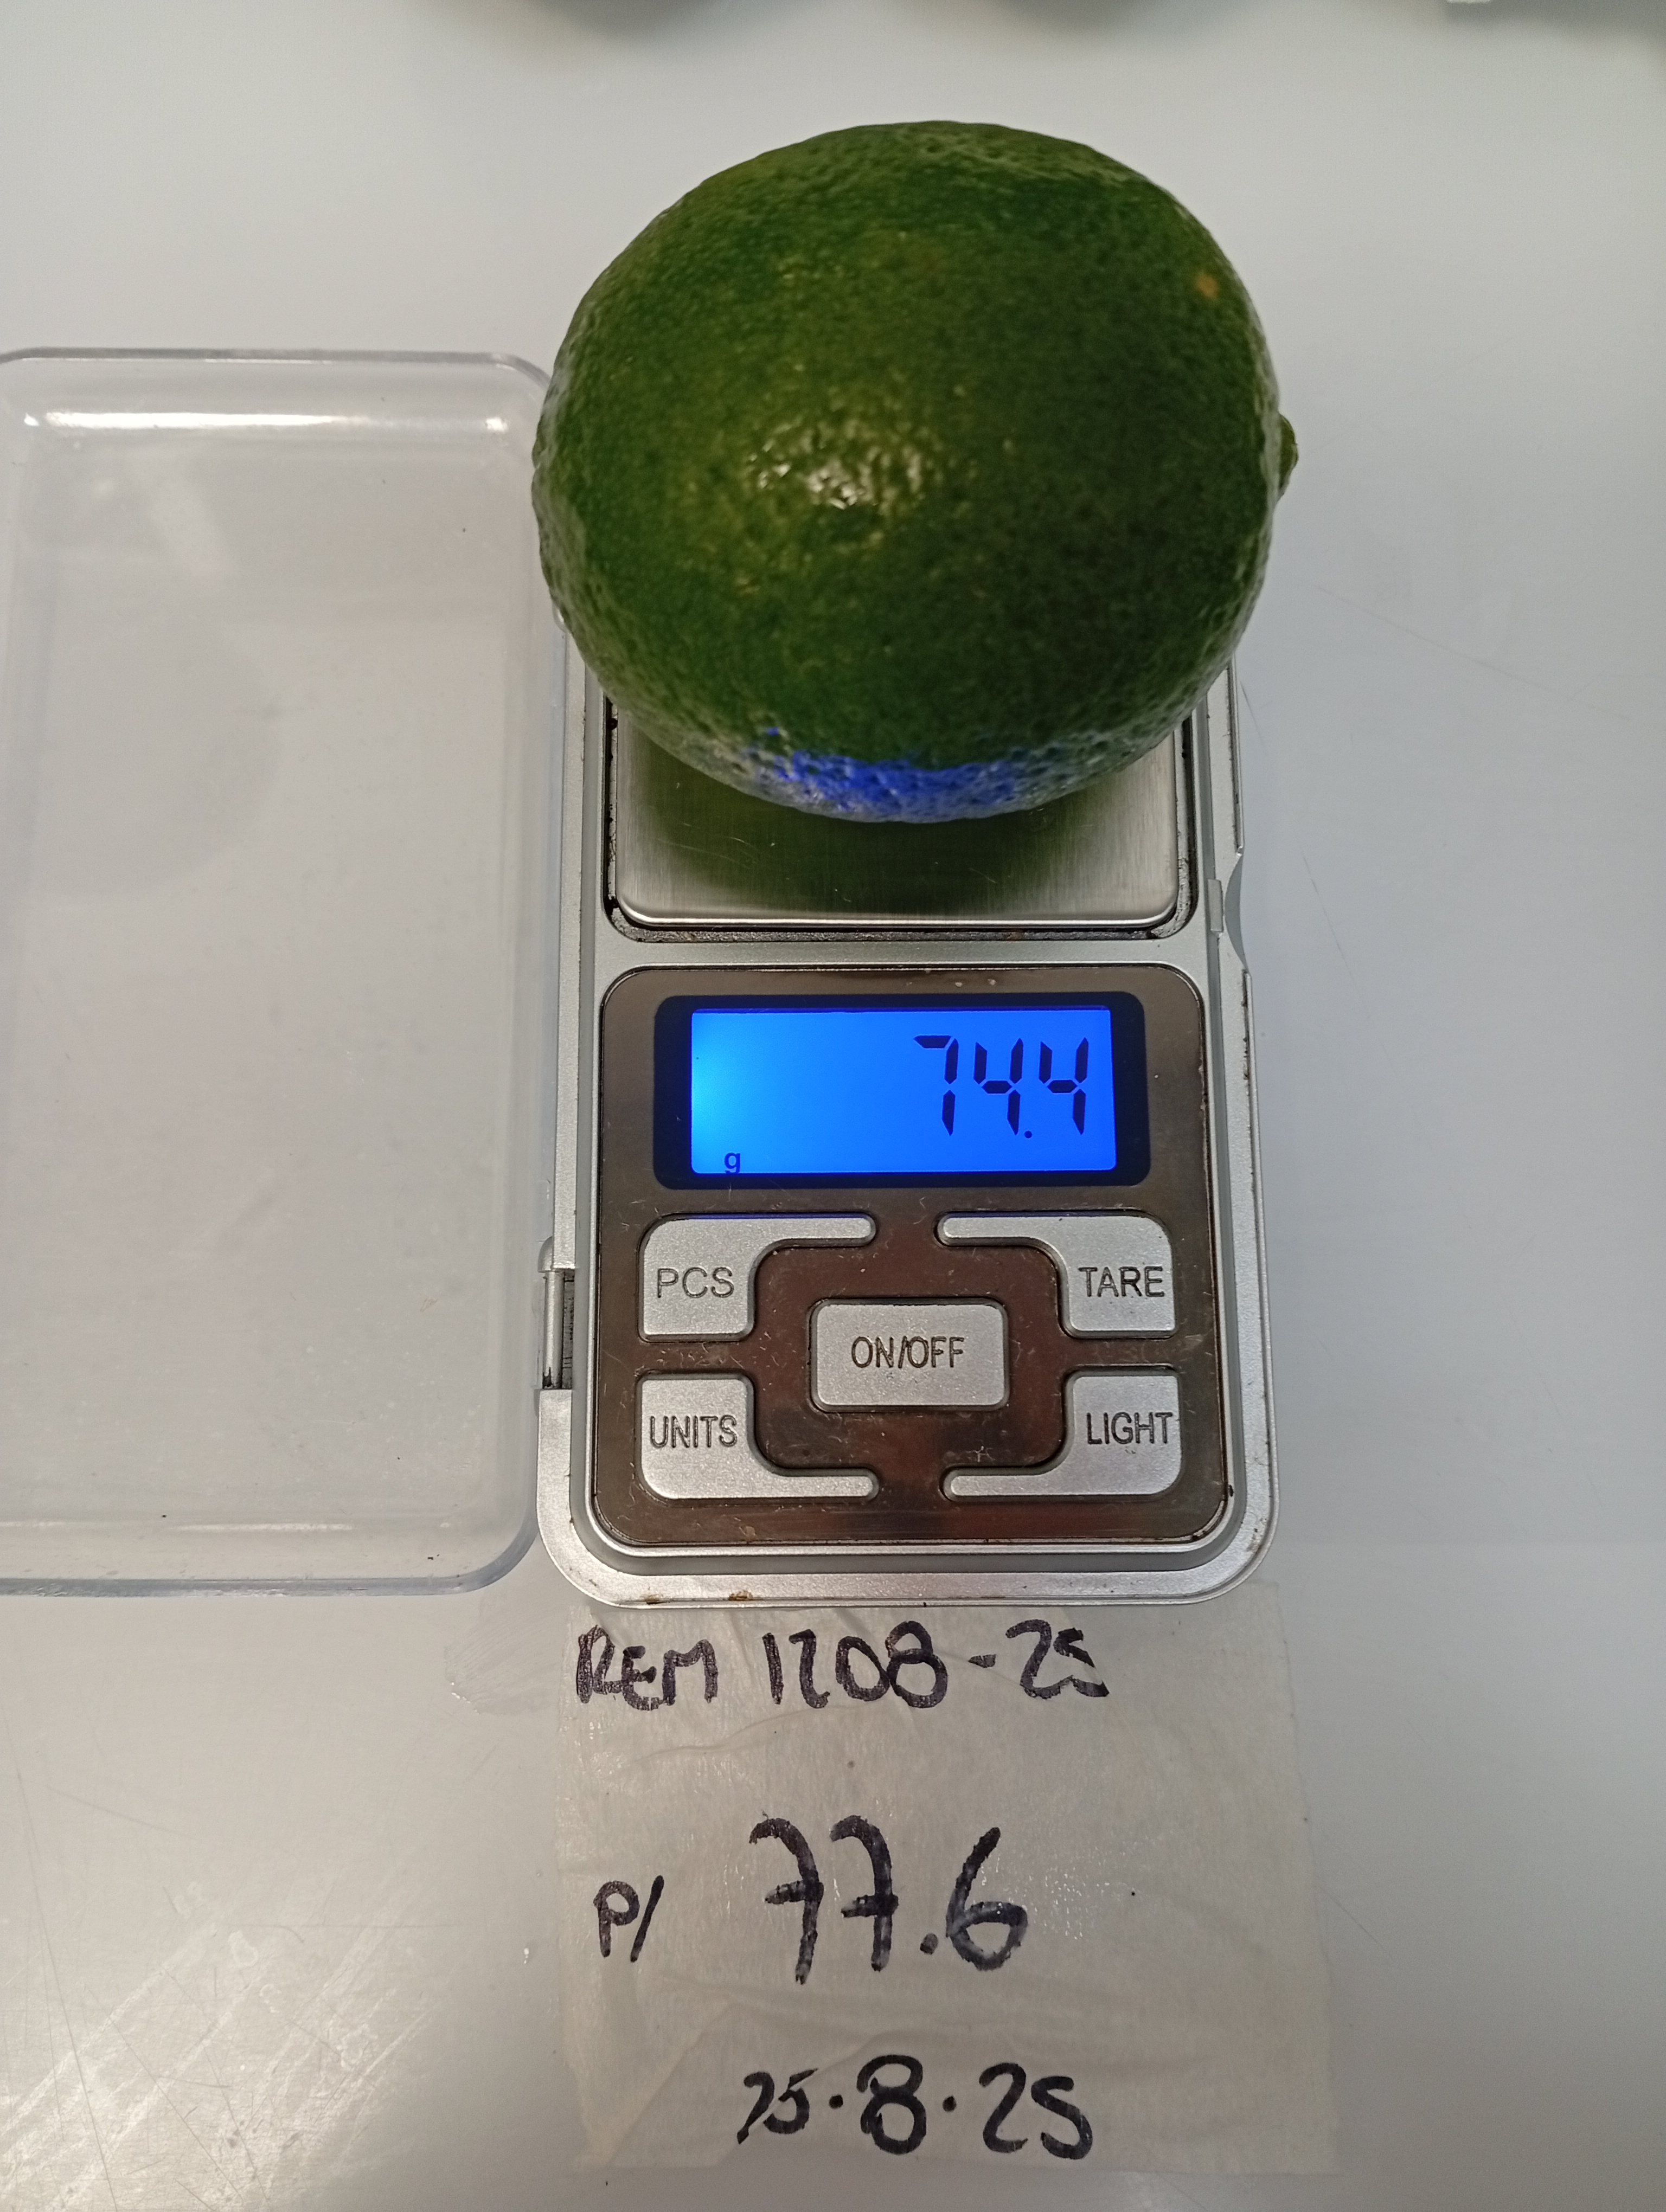 74.4
g
PCS
TARE
ON/OFF
UNITS
LIGHT
REM 1208-25
P/ 77.6
25.8.25